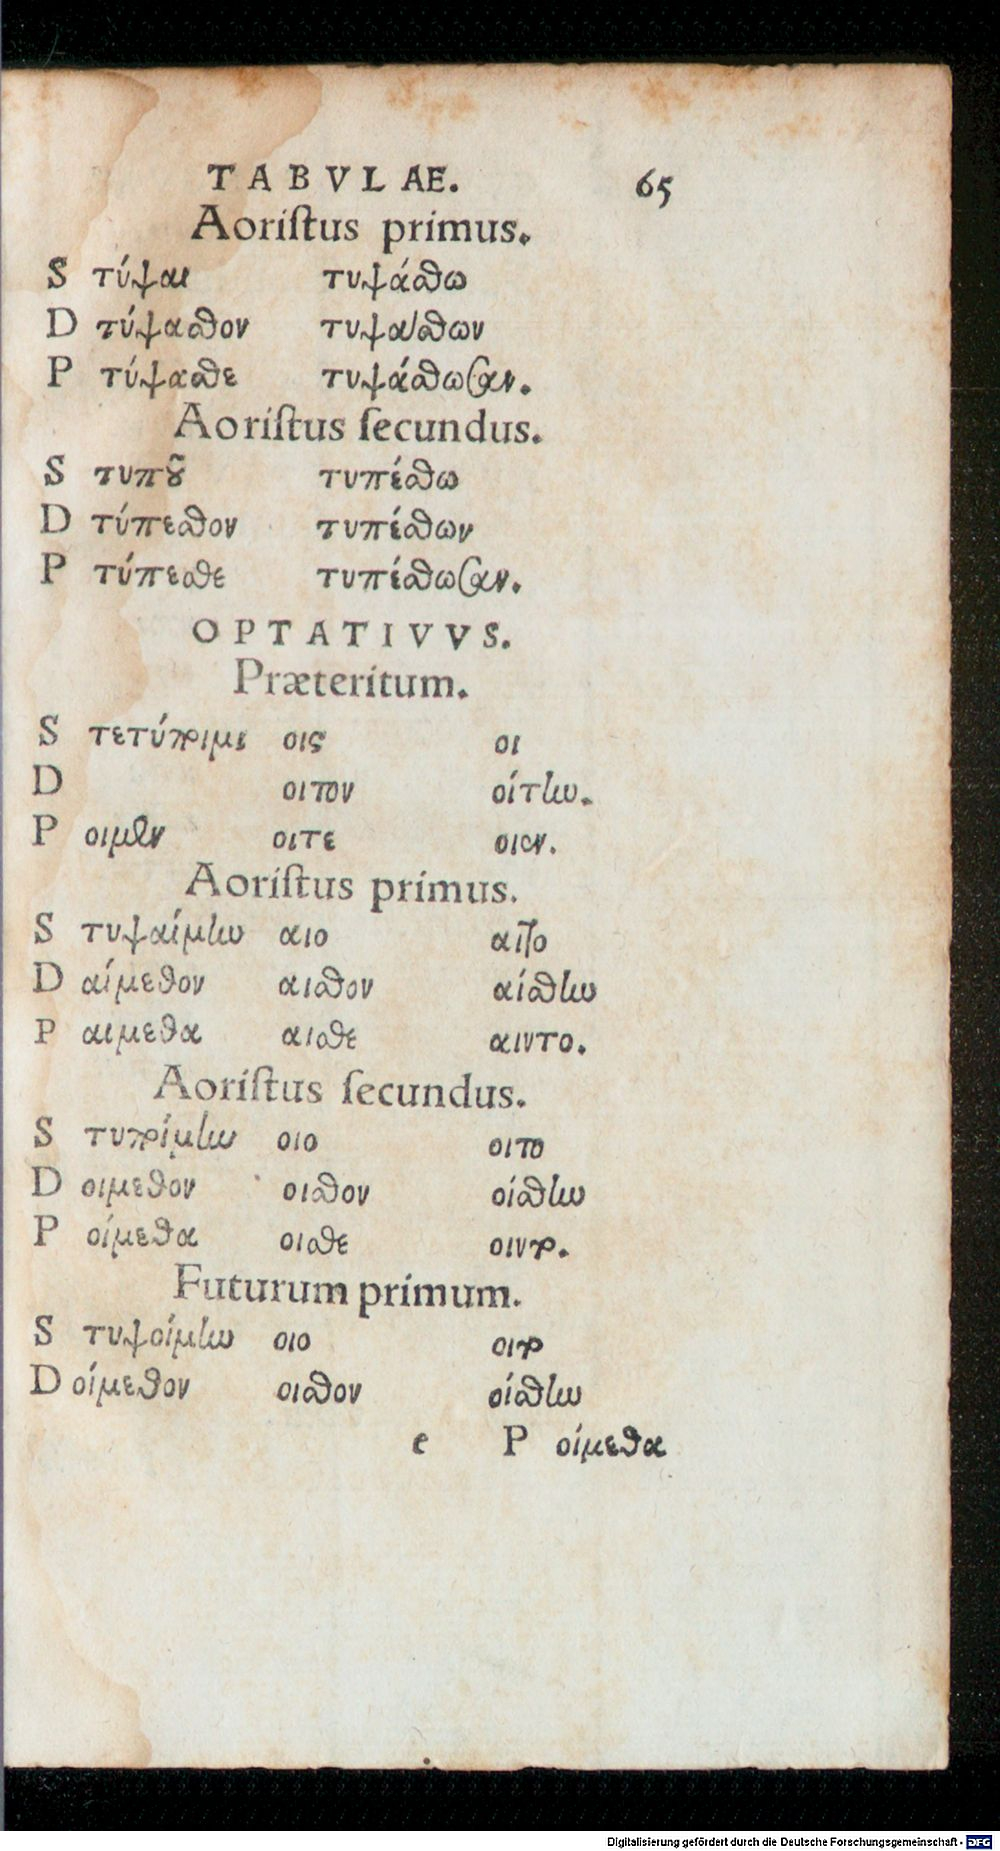 TABVLAE. 65
Aoriſtus primus.
S τύψαι τυψάσθω
D τύψασθον τυψάσθων
P τύψασθε τυψάσθωσαν.
Aoriſtus ſecundus.
S τυποῦ τυπέσθω
D τύπεσθον τυπέσθων
P τύπεσθε τυπέσθωσαν.
OPTATIVVS.
Præteritum.
S τετύποιμι οις οι
D οιτον οίτην.
P οιμεν οιτε οιεν.
Aoriſtus primus.
S τυψαίμην αιο αιτο
D αίμεθον αισθον αίσθην
P αιμεθα αισθε αιντο.
Aoriſtus ſecundus.
S τυποίμην οιο οιτο
D οιμεθον οισθον οίσθην
P οίμεθα οισθε οιντο.
Futurum primum.
S τυψοίμην οιο οιτο
D οίμεθον οισθον οίσθην
e P οίμεθα
Digitalisierung gefördert durch die Deutsche Forschungsgemeinschaft - DFG